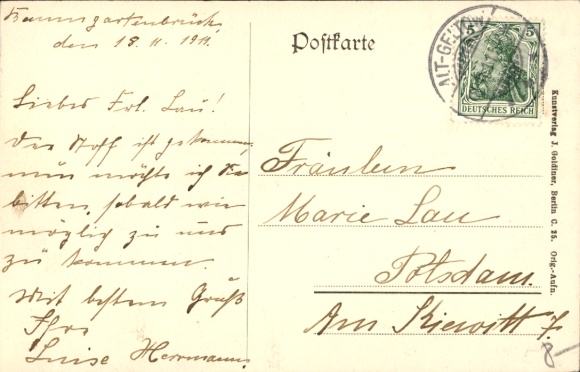 Baumgartenbrück,
den 18. 11. 1911.
Liebes Frl. Lau!
Der Stoff ist gekommen,
nun möchte ich Sie
bitten, sobald wie
möglich zu uns
zu kommen.
Mit bestem Gruß
Ihre
Luise Herrmann.
Postkarte
ALT-GELTOW
5 5
DEUTSCHES REICH
Fräulein
Marie Lau
Potsdam.
Am Kiewitt 7.
8
Kunstverlag J. Goldiner, Berlin C. 25. Orig.-Aufn.